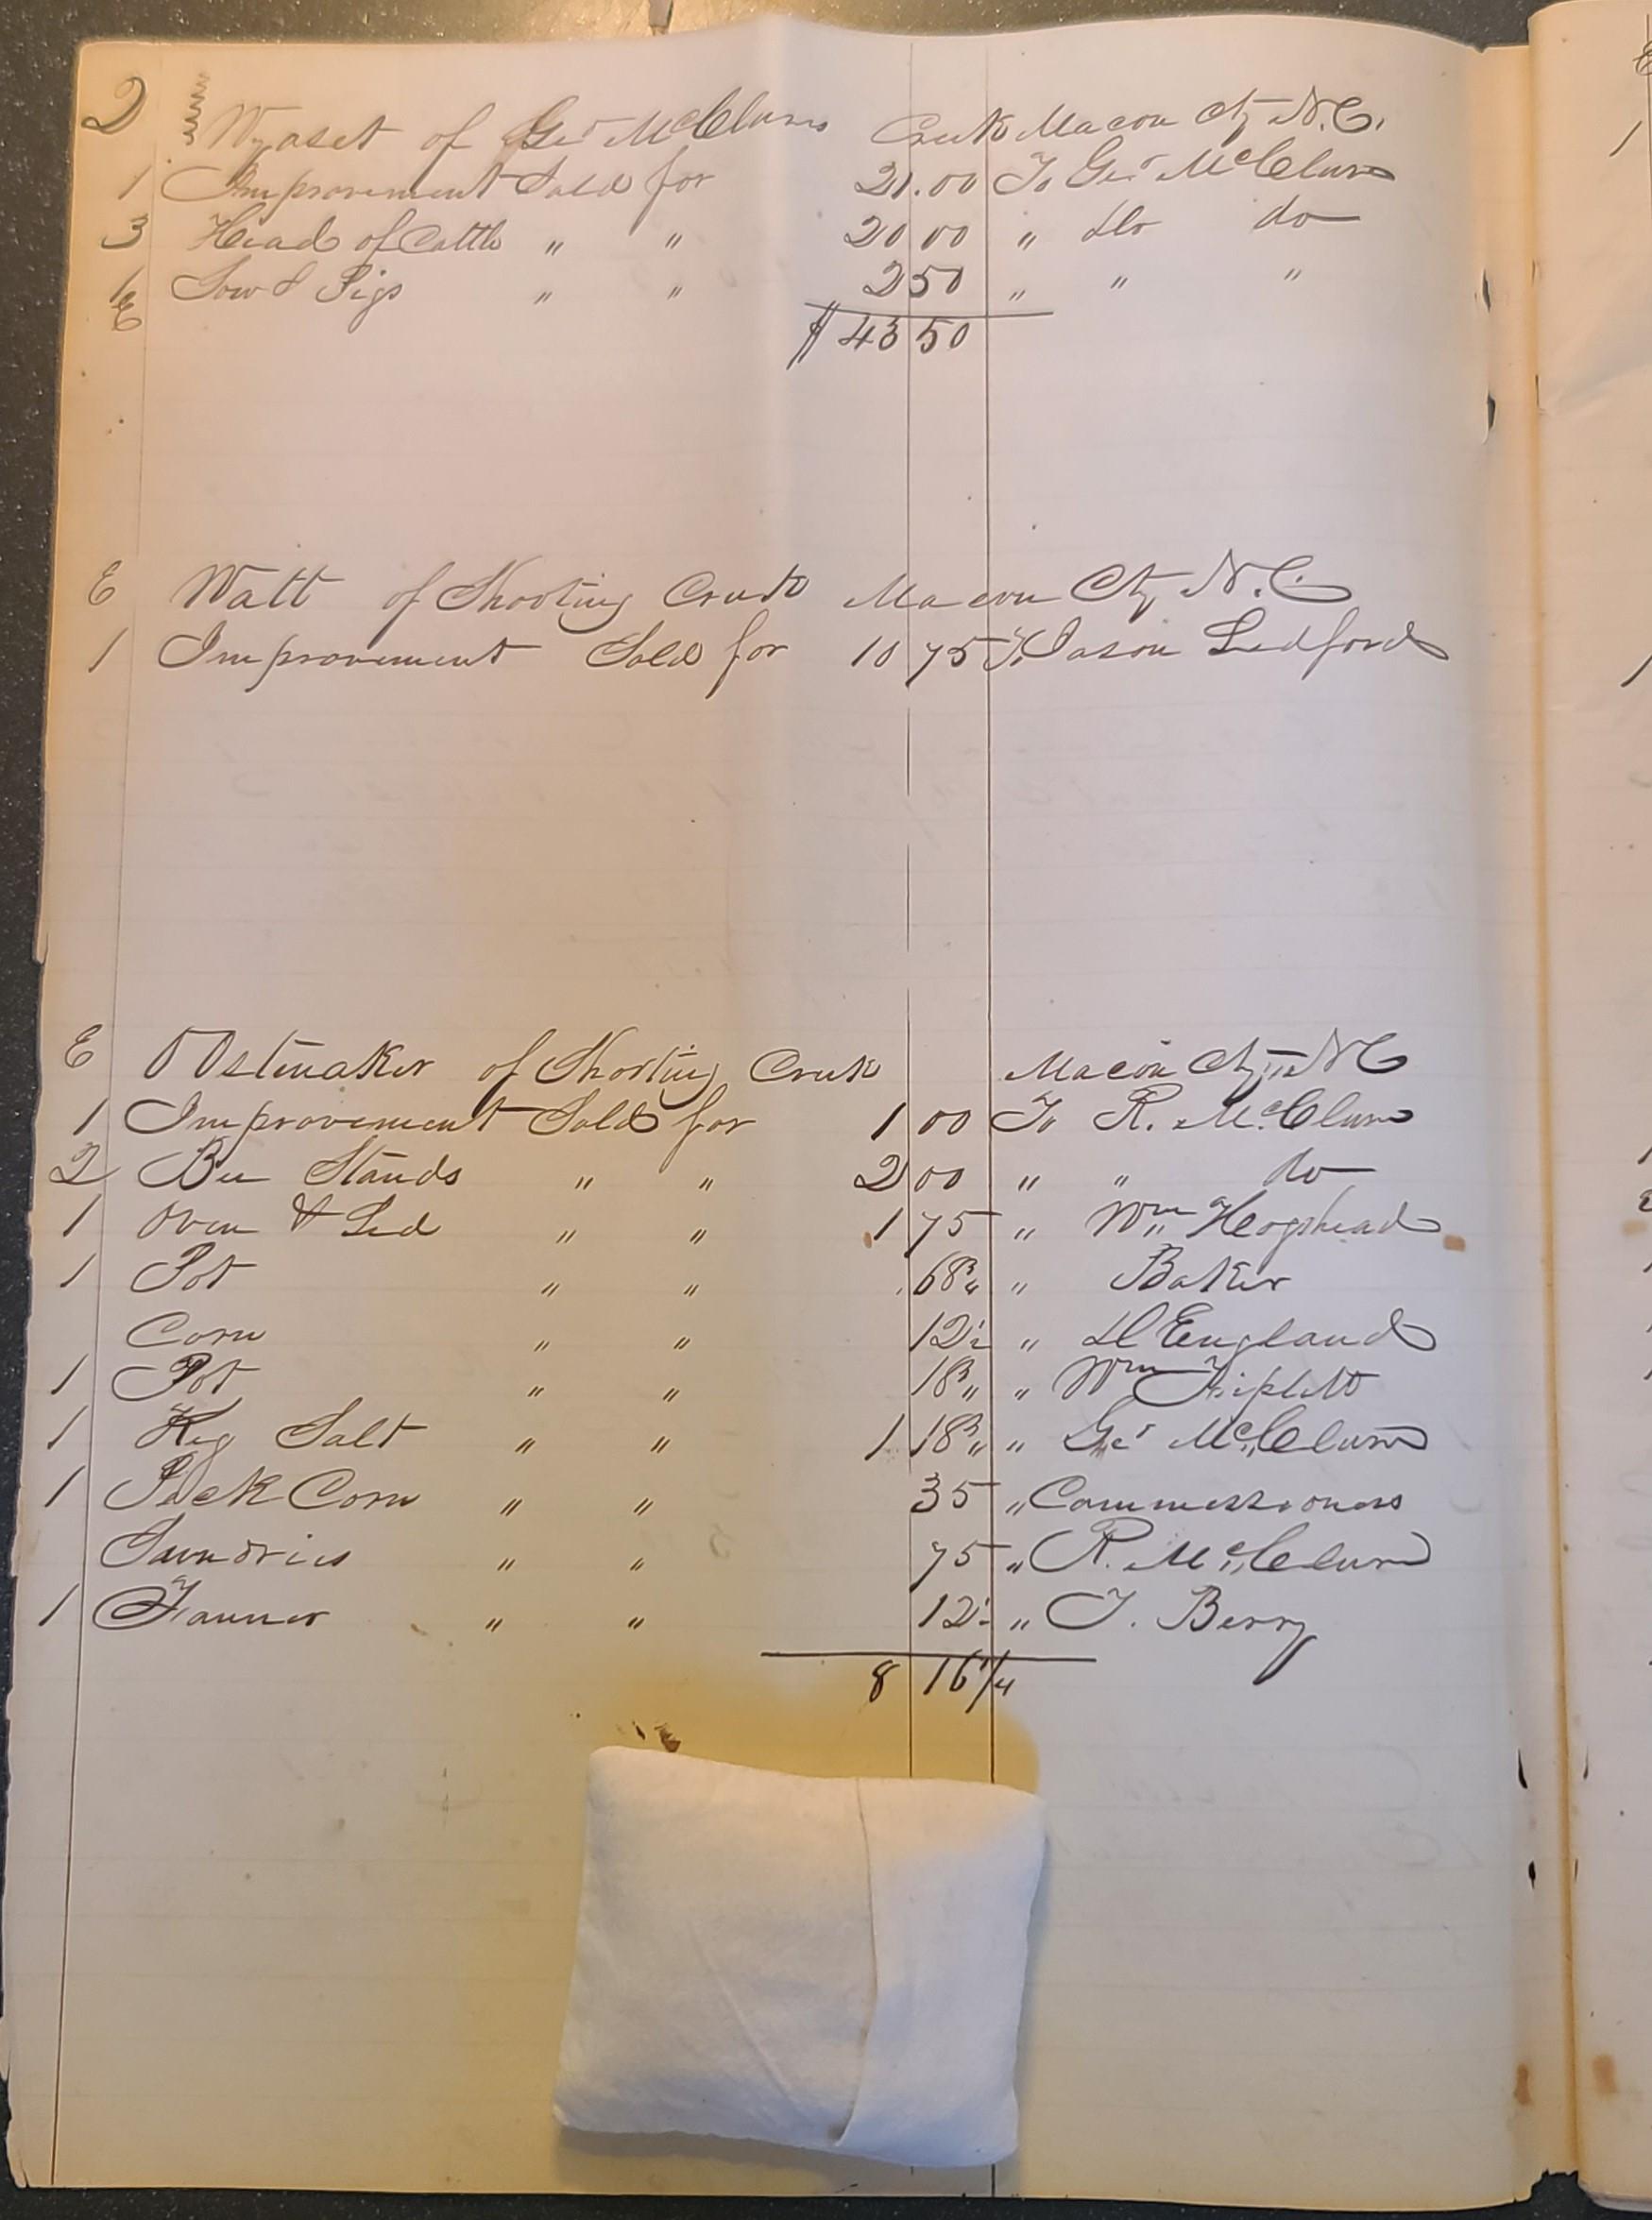 2 Wyaset of Geo McClures Creek Macon Cty N.C.
1 Improvement Sold for 21.00 To Geo McClure
3 Head of Cattle " " 20 00 " do do
1 Sow & Pigs " " 2 50 " " "
E $ 43 50
E Watt of Shooting Creek Macon Cty N.C.
1 Improvement Sold for 10 75 To Jason Ledford
E of Shooting Creek Macon Cty N C
1 Improvement Sold for 1 00 To R. McClure
2 Bee Stands " " 2 00 " " do
1 Oven & Led " " 1 75 " Wm Hogshead
1 Pot " " 68 3/4 " Baker
Corn " " 12 1/2 " England
1 Pot " " 18 3/4 " Wm Triplett
1 Keg Salt " " 1 18 3/4 " Geo McClure
1 Peck Corn " " 35 " Commissioners
Saundries " " 75 " R. McClure
1 Fanner " " 12 1/2 " T. Berry
8 16 1/4